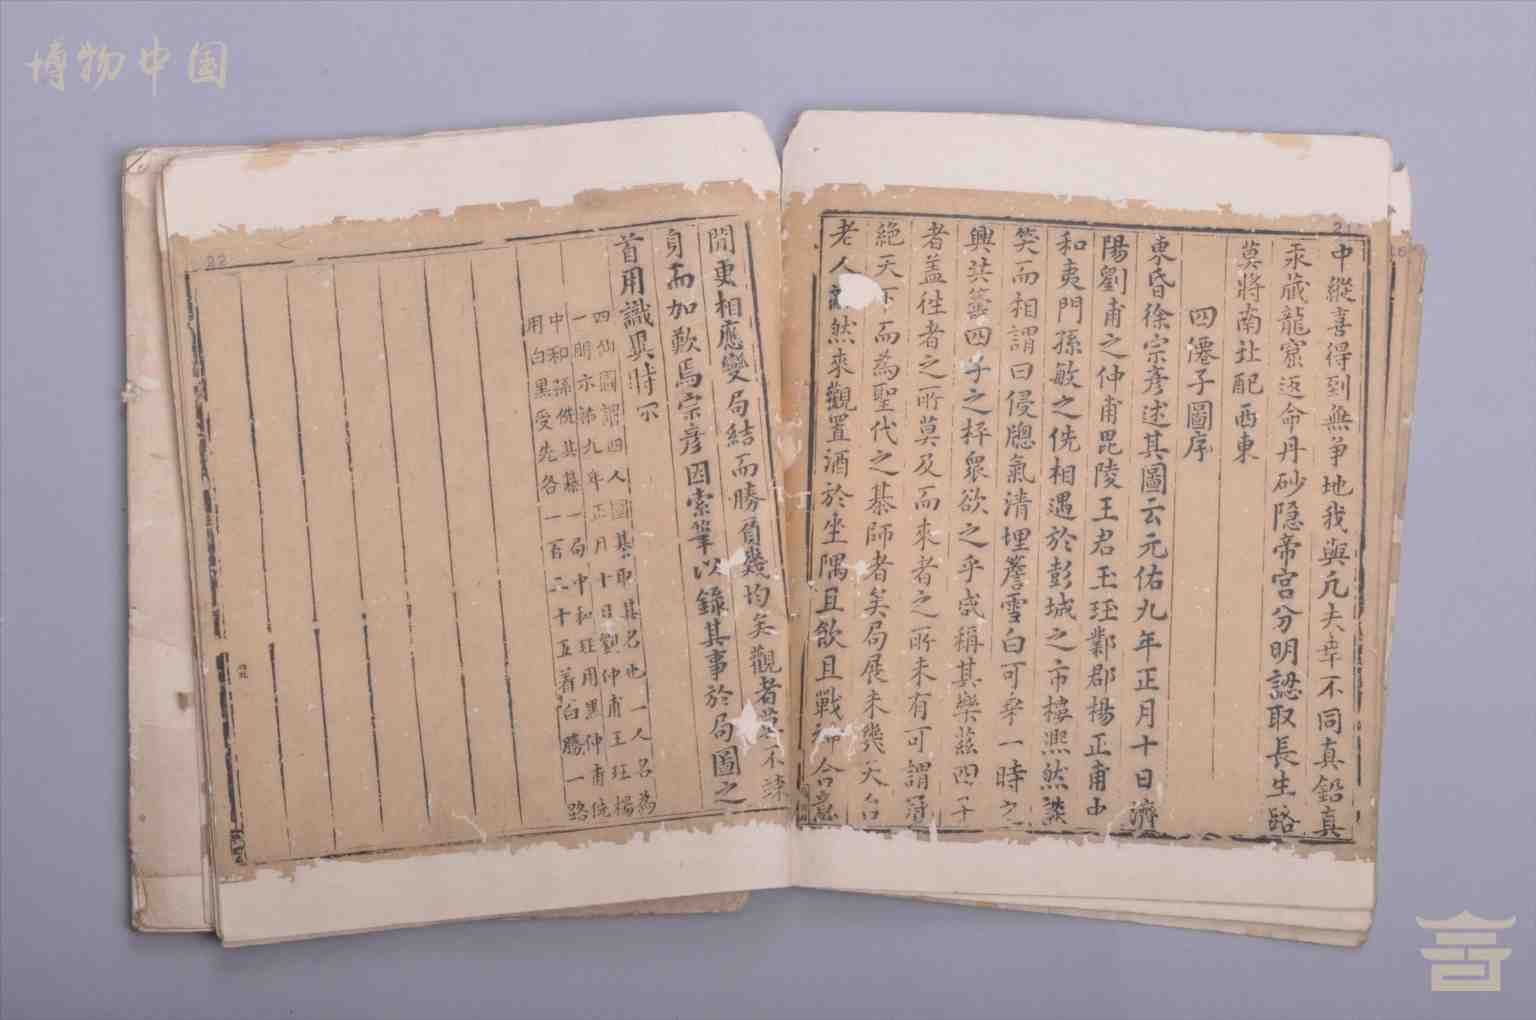 博物中国
中縱喜得到無爭地我與元夫幸不同真鉛真
汞藏龍窟返命丹砂隱帝宮分明認取長生路
莫將南北配西東
四僊子圖序
東昏徐宗彥述其圖云元佑九年正月十日濟
陽劉甫之仲甫毘陵王君玉珏鄴郡楊正甫中
和夷門孫敏之侁相遇於彭城之市樓熙然談
笑而相謂曰侵牕氣清埋簷雪白可乎一時之
興共籌四子之枰眾欲之乎咸稱其樂茲四子
者蓋徃者之所莫及而來者之所未有可謂冠
絕天下而為聖代之棊師者矣局展未幾天台
老人 然來觀置酒於坐隅且飲且戰神合意
閒更相應變局結而勝負幾均矣觀者莫不諫
身而加歎焉宗彥因索筆以錄其事於局圖之
首用識異時
四仙圖謂四人圖棊取其名也一人名為
一明示祐九年正月十日劉仲甫王珏楊
中和孫侁其棊一局中和珏用黑仲甫侁
用白黑受先各一百二十五着白勝一路
22
21